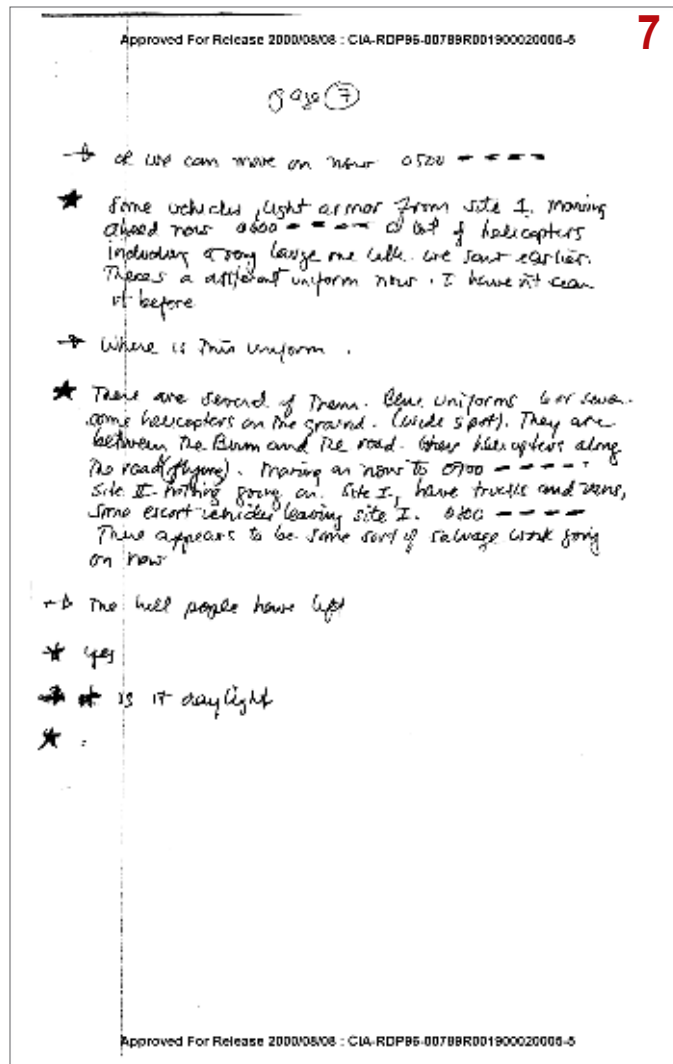 Approved For Release 2000/08/08 : CIA-RDP96-00789R001900020006-5
7
page 7
we can move on now 0500 - - - -
★ Some vehicles, light armor from site I. Moving
ahead now 0600 - - - - a lot of helicopters
including a very large one like we saw earlier.
Theres a different uniform now. I haven't seen
it before
Where is this uniform.
★ There are several of them. Blue uniforms 6 or seven
some helicopters on the ground. (wide spot). They are
between the Burm and the road. helicopters along
the road (flying). Moving on now to 0700 - - - - -
Site II nothing going on. Site I, have trucks and vans,
some escort vehicles leaving site I. 0800 - - - -
There appears to be some sort of salvage work going
on now
The hill people have left
★ yes
is it daylight
★ :
Approved For Release 2000/08/08 : CIA-RDP96-00789R001900020006-5